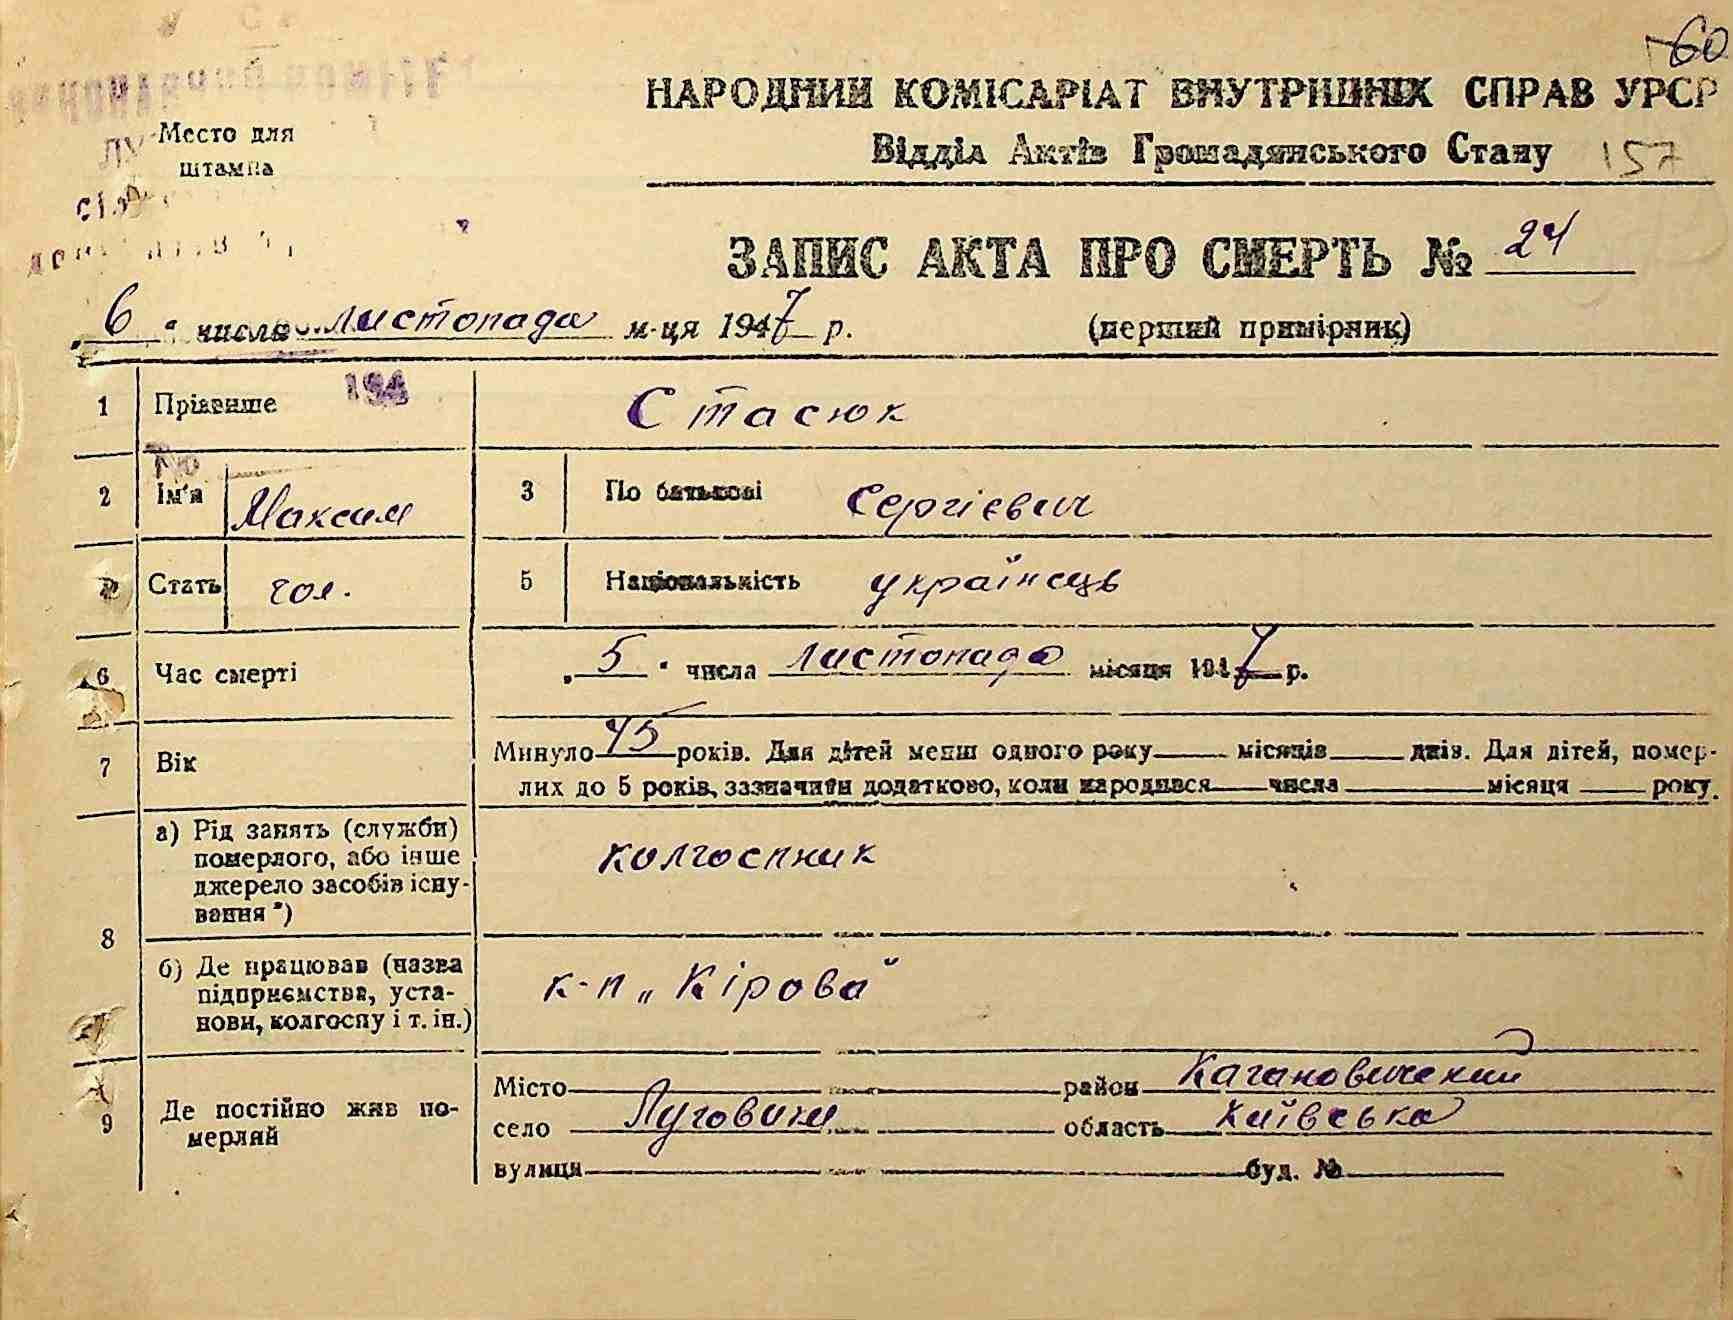 60
НАРОДНИЙ КОМІСАРІАТ ВНУТРІШНІХ СПРАВ УРСР
Відділ Актів Громадянського Стану 157
Место для
штампа
ЗАПИС АКТА ПРО СМЕРТЬ № 24
„6“ числа листопада м-ця 1947 р. (перший примірник)
1 Прізвище 194 Стасюк
2 Ім'я Максим 3 По батькові Сергієвич
Стать чол. 5 Національність українець
6 Час смерті „5“ числа листопада місяця 1947 р.
7 Вік Минуло 45 років. Для дітей менш одного року місяців днів. Для дітей, помер-
лих до 5 років, зазначити додатково, коли народився числа місяця року.
8 а) Рід занять (служби)
померлого, або інше
джерело засобів існу-
вання*)
колгоспник
б) Де працював (назва
підприємства, уста-
нови, колгоспу і т. ін.)
к-п „Кірова“
9 Де постійно жив по-
мерлий
Місто район Кагановический
село Луговики область Київська
вулиця буд. №